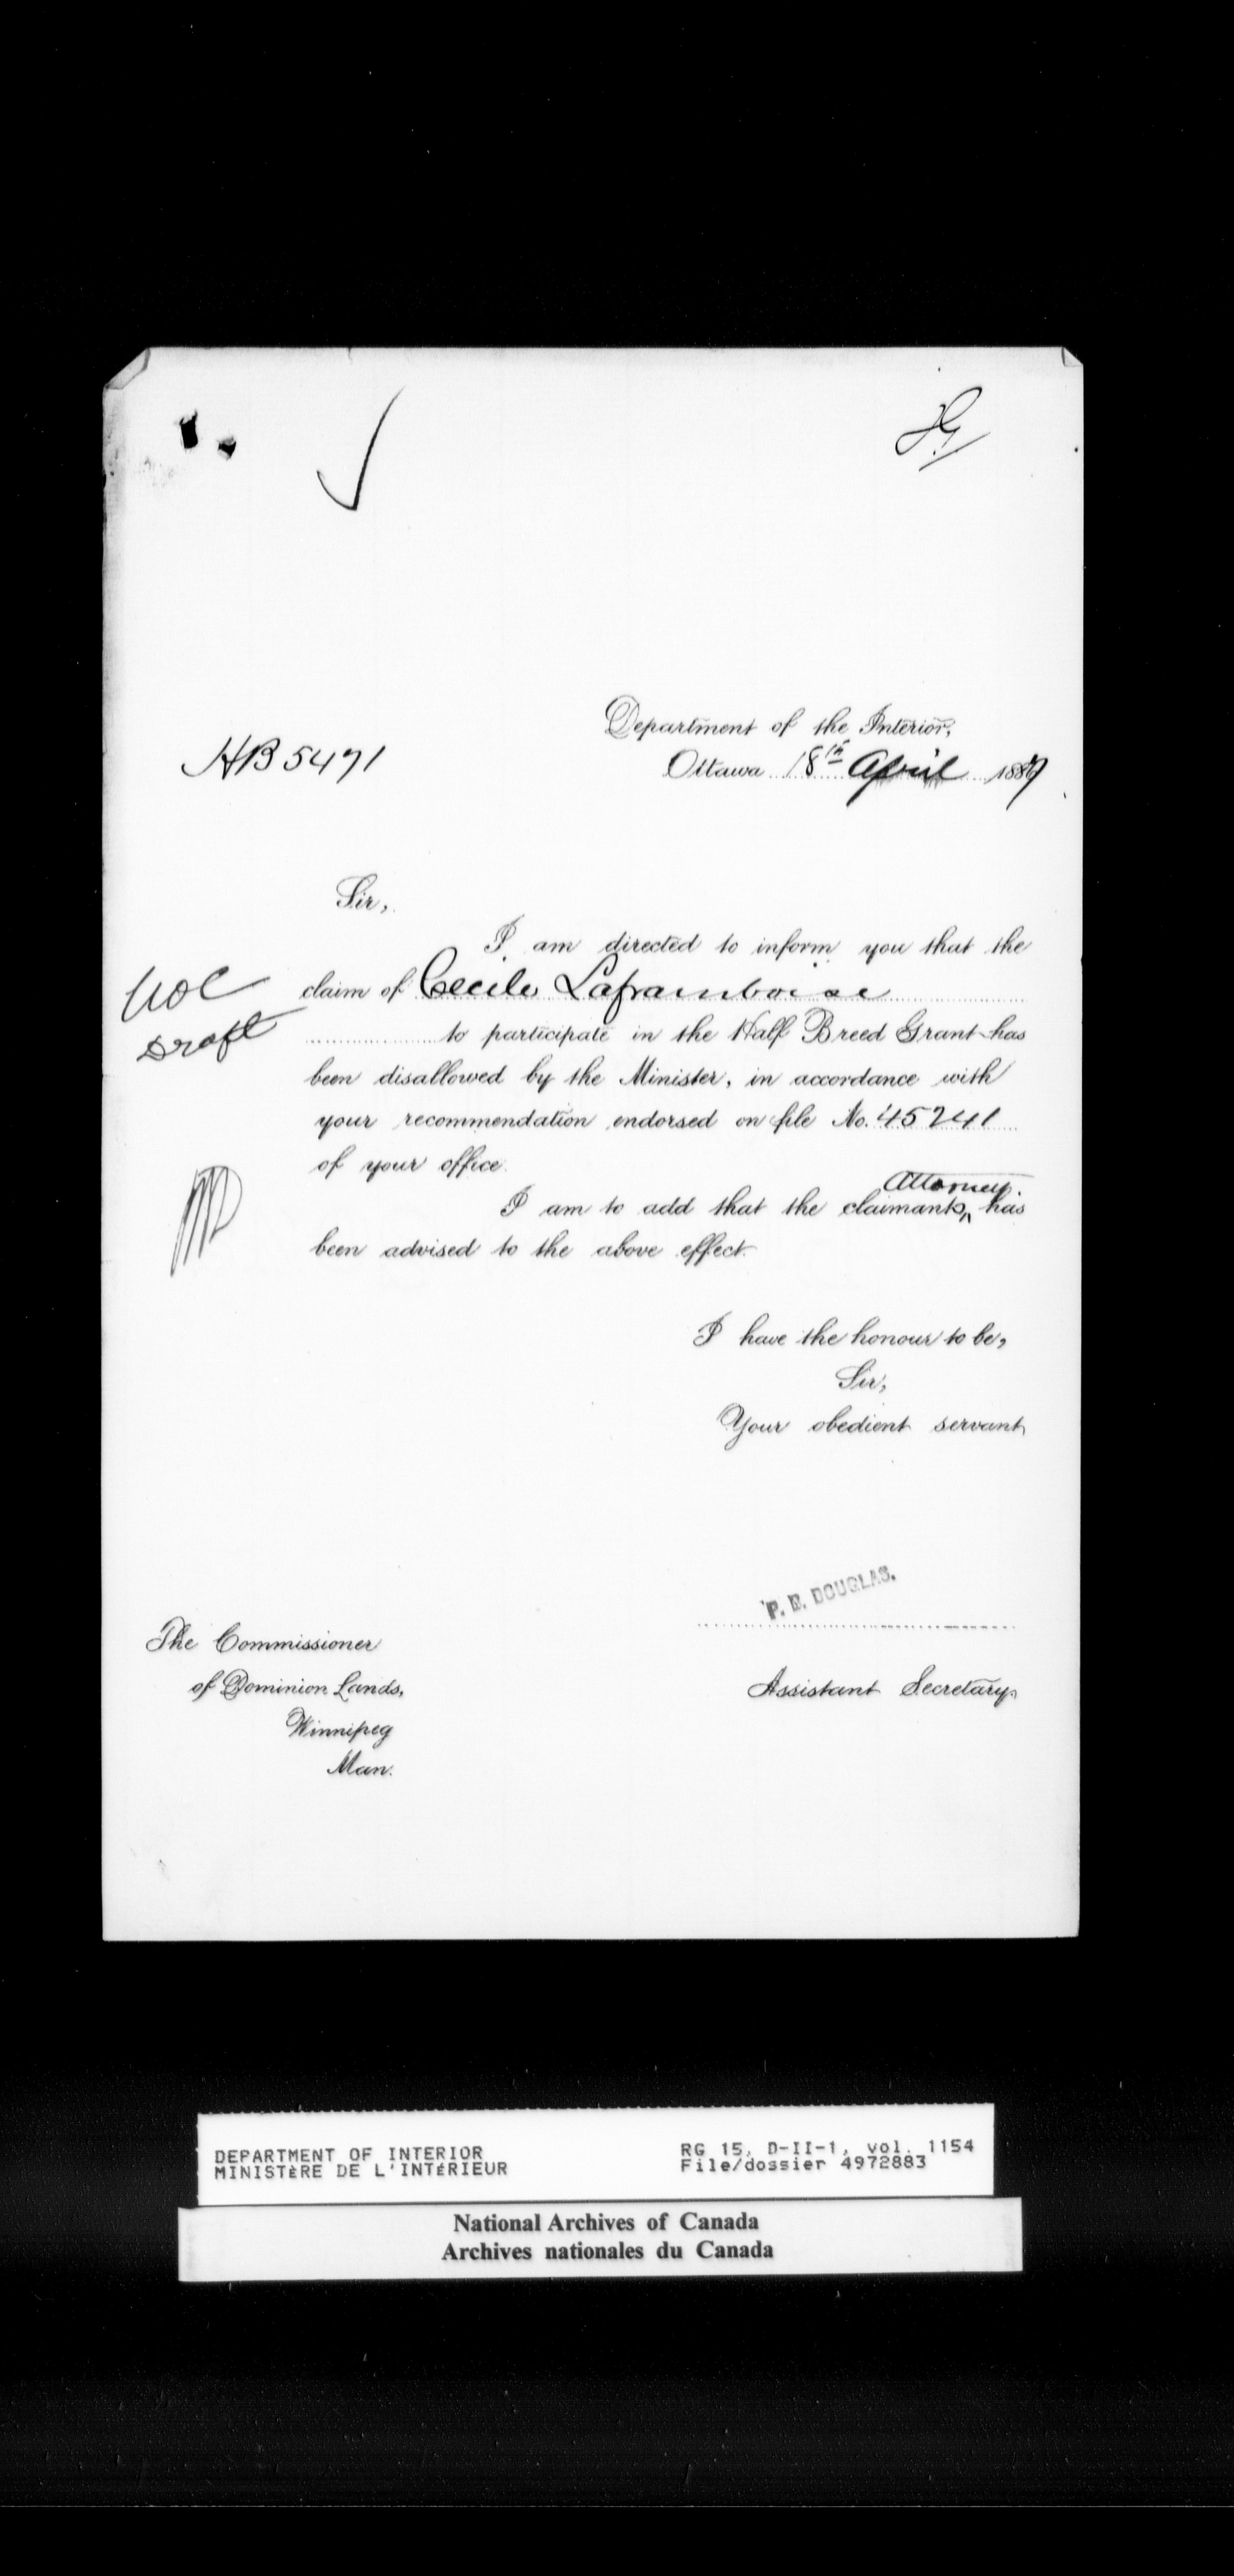 Department of the Interior,
HB 5471
Ottawa 18th April 1889
Sir,
I am directed to inform you that the
claim of Cecile Laframboise
Draft
to participate in the Half Breed Grant has
been disallowed by the Minister, in accordance with
your recommendation endorsed on file No. 45241
of your office.
Attorney
I am to add that the claimants has
been advised to the above effect.
I have the honour to be,
Sir,
Your obedient servant
P. E. DOUGLAS.
The Commissioner
of Dominion Lands,
Assistant Secretary.
Winnipeg
Man.
DEPARTMENT OF INTERIOR
MINISTÈRE DE L'INTÉRIEUR
RG 15, D-II-1, vol. 1154
File/dossier 4972883
National Archives of Canada
Archives nationales du Canada